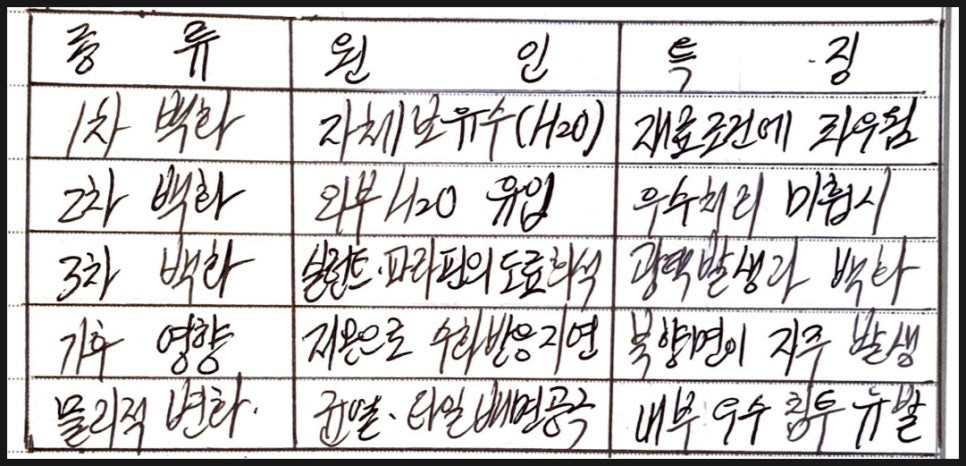 종 류 원 인 특 징
1차 백화 자체보유수(H2O) 재료조건에 좌우됨
2차 백화 외부 H2O 유입 우수처리 미흡시
3차 백화 실런트·파라핀의 도료희석 광택발생라 백화
기후 영향 저온으로 수화반응지연 북향면이 자주 발생
물리적 변화. 균열·타일배면공극 내부 우수 침투 유발